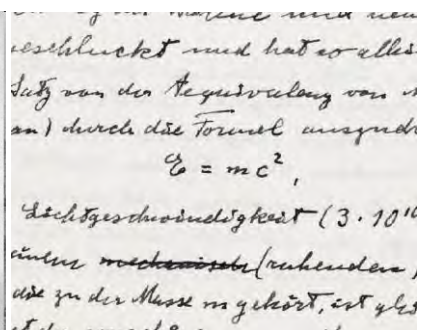 der Wärme und
geschluckt und hat so alle
Satz von der Aequivalenz von
an) durch die Formel ausgedr
E = mc²,
Lichtgeschwindigkeit (3 . 10¹⁰
mechanisch (ruhenden)
die zu der Masse m gehört, ist glei